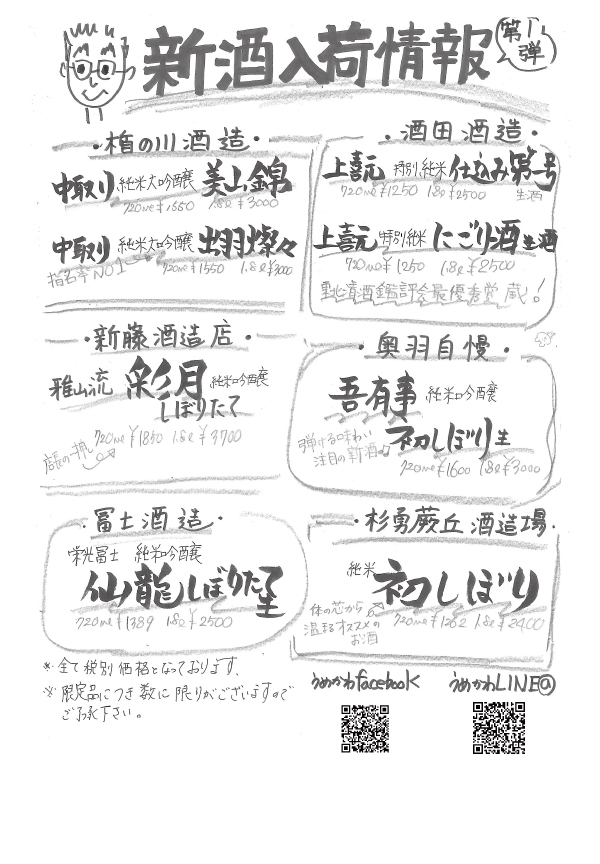 新酒入荷情報
第1弾
・楯の川酒造・
中取り 純米大吟醸 美山錦
720ml ¥1550 1.8l ¥3000
中取り 純米大吟醸 出羽燦々
指名率NO1 720ml ¥1550 1.8l ¥3000
・酒田酒造・
上喜元 特別純米 仕込み第一号
720ml ¥1250 1.8l ¥2500 生酒
上喜元 特別純米 にごり酒 生酒
720ml ¥1250 1.8l ¥2500
東北清酒鑑評会最優秀賞蔵!
・新藤酒造店・
雅山流 彩月 純米吟醸
しぼりたて
店長の一押し 720ml ¥1850 1.8l ¥3700
・奥羽自慢・
吾有事 純米吟醸
初しぼり 生
弾ける味わい
注目の新酒
720ml ¥1600 1.8l ¥3000
・冨士酒造・
栄光冨士 純米吟醸
仙龍しぼりたて 生
720ml ¥1389 1.8l ¥2500
・杉勇蕨丘酒造場・
純米 初しぼり
体の芯から
温まるオススメの
お酒
720ml ¥1262 1.8l ¥2400
※全て税別価格となっております。
※限定品につき数に限りがございますので
ご了承下さい。
うめかわfacebook
うめかわLINE@